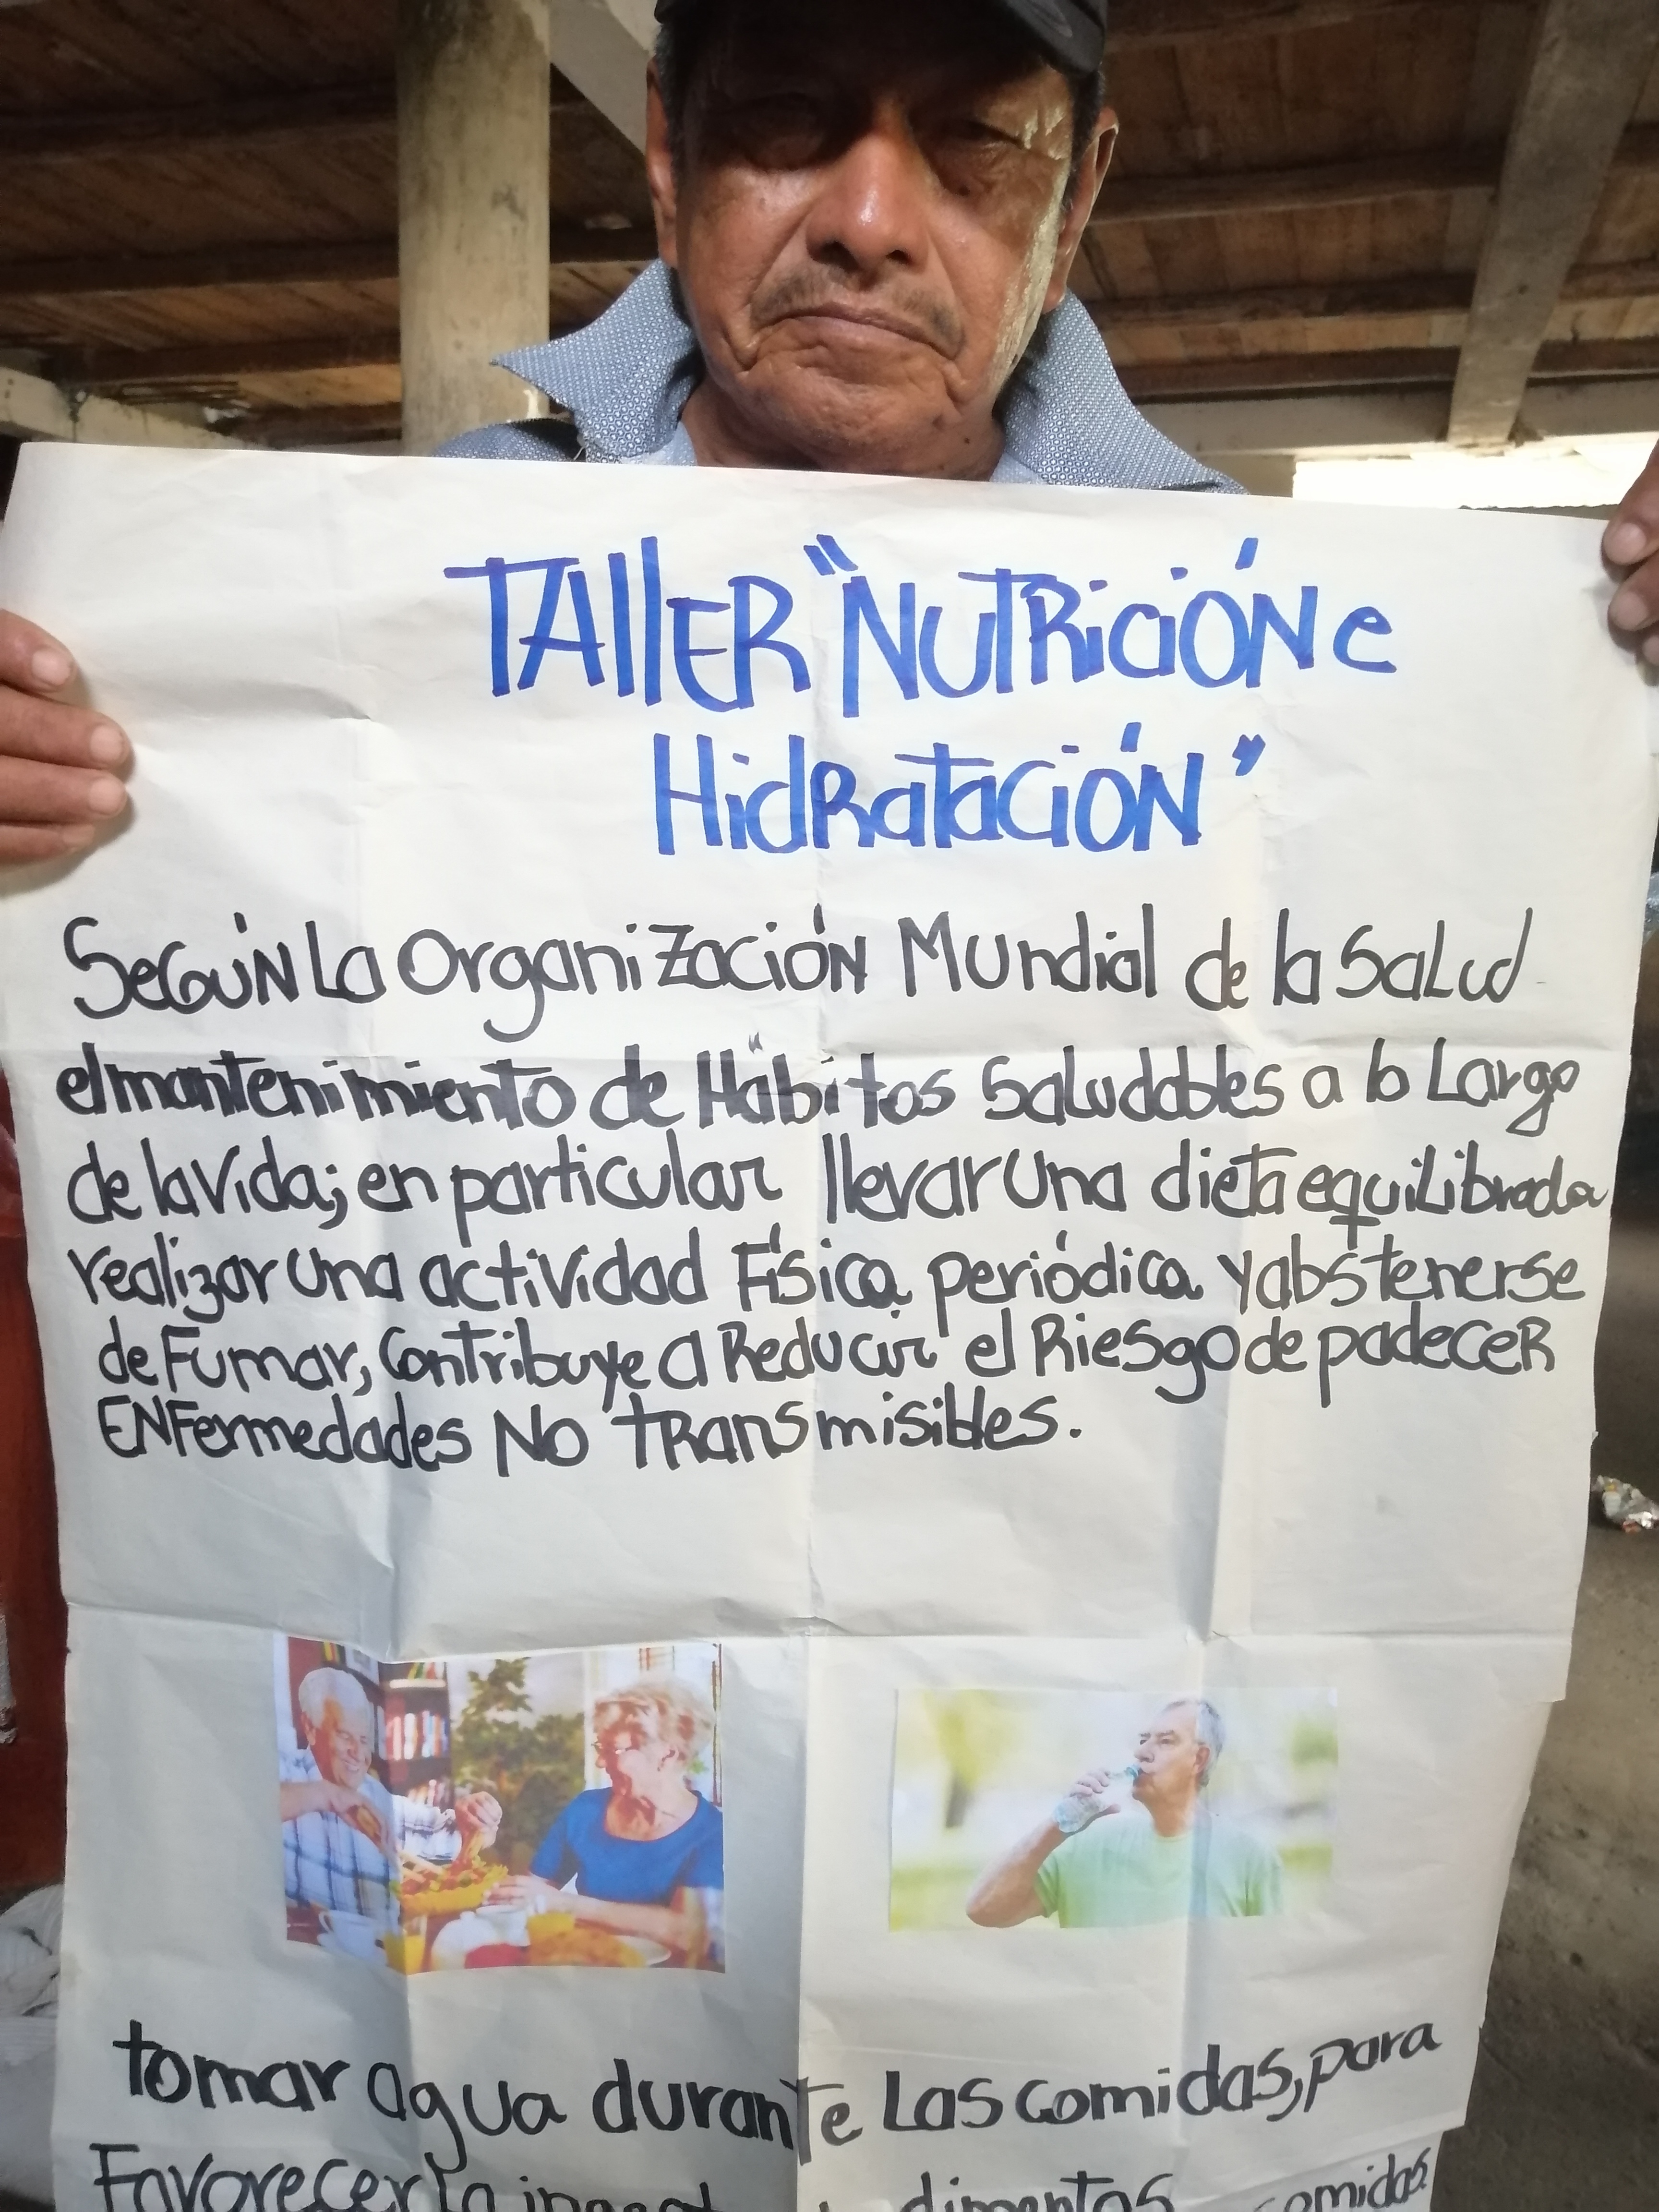 TALLER "NUTRICIÓN e
HidRatación"
SEGÚN La Organización Mundial de la Salud
el mantenimiento de Hábitos Saludables a lo Largo
de la Vida; en particular llevar una dieta equilibrada
realizar una actividad Física periódica y abstenerse
de Fumar, Contribuye a Reducir el Riesgo de padecer
Enfermedades No transmisibles.
tomar agua durante Las comidas, para
Favorecer la comidas